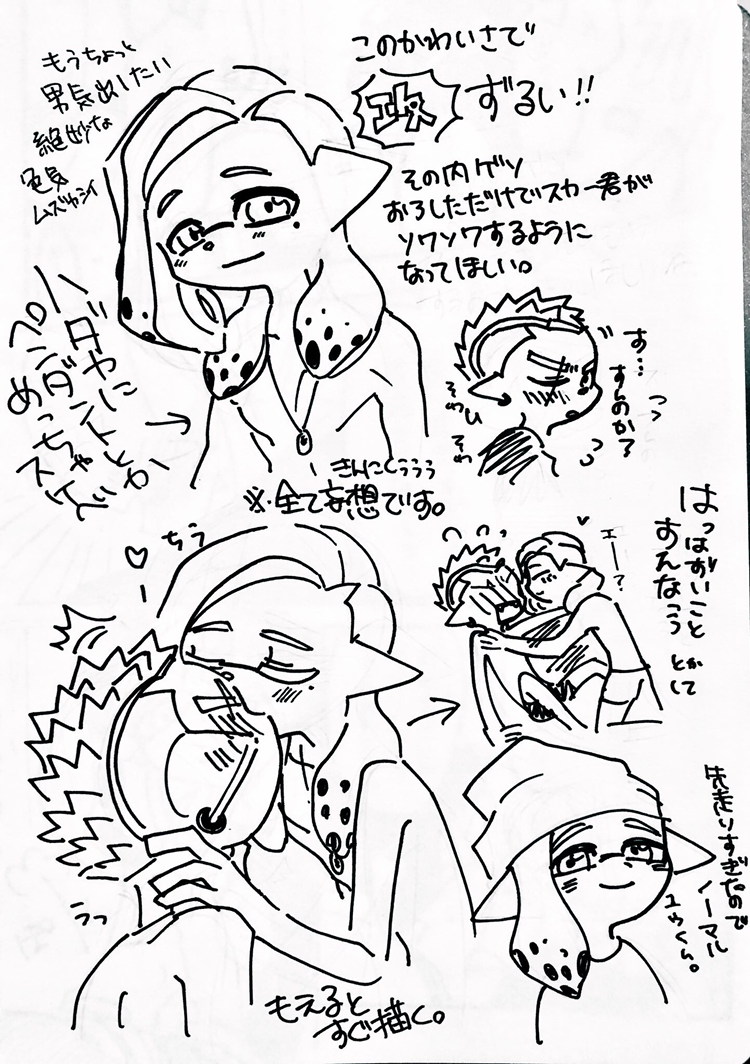 もうちょっと
男気出したい
絶妙な
色気
ムズカシイ
このかわいさで
攻 ずるい!!
その内ゲソ
おろしただけでスカー君が
ソワソワするように
なってほしい。
す…
すんのか?
そわ
そわ
ハダカに
ペンダントとか
めっちゃ
きんにくううう
※全て妄想です。
ちう
はっはずいこと
すんなっっ
とかして
エー?
うっ
もえると
すぐ描く。
先走りすぎたので
ノーマル
ユウくん。